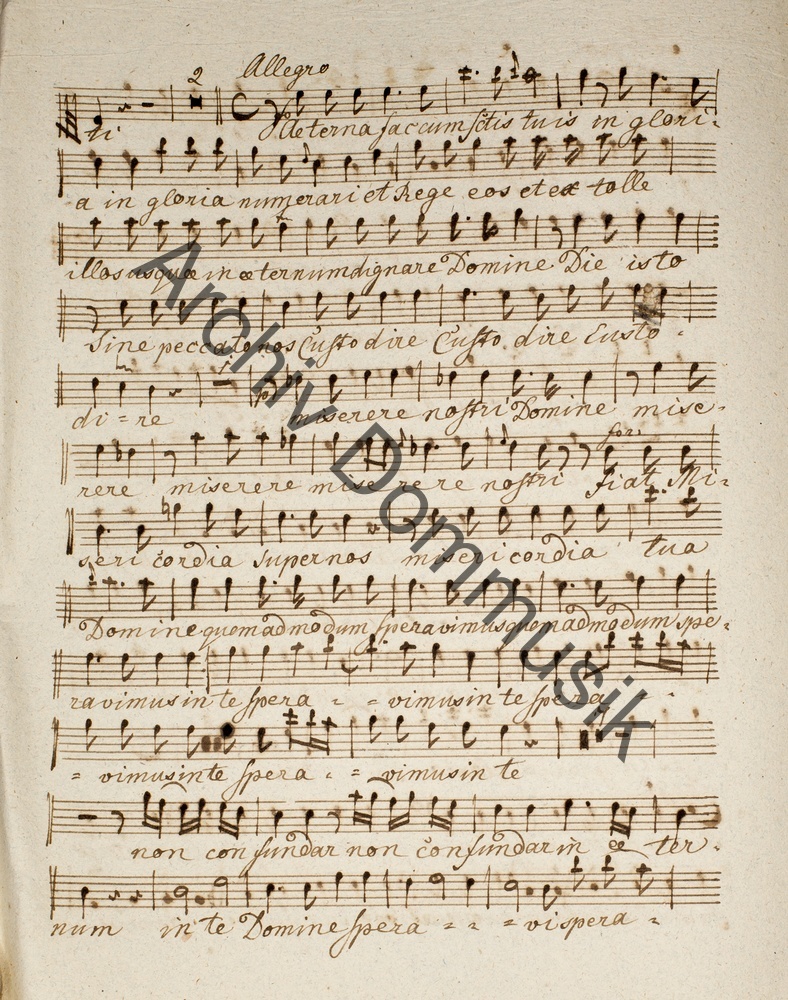 2 Allegro
ti Aeterna fac cum sctis tuis in glori-
a in gloria numerari et Rege eos et ex tolle
illos usque in æternum dignare Domine Die isto
Sine peccato nos Custo dire Custo dire Custo-
di = re miserere nostri Domine mise-
for:
rere miserere mise re re nostri fiat Mi-
seri cordia super nos miseri cordia tua
Domine quem ad mo dum speravimus quem ad mo dum spe-
ravimus in te spera - = vimus in te spera -
= vimus in te spera - = vimus in te
non con fundar non confundar in æ ter-
num in te Domine spera = - = vi spera -
Archiv Dommusik